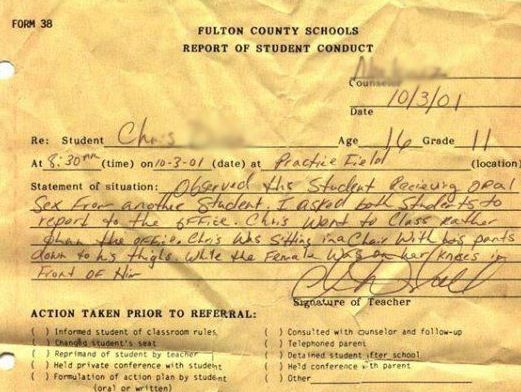 FORM 38
FULTON COUNTY SCHOOLS
REPORT OF STUDENT CONDUCT
Counselor
10/3/01
Date
Re: Student Chris Age 16 Grade 11
At 8:30 (time) on 10-3-01 (date) at Practice Field (location)
Statement of situation: Observed this Student Recieving oral
Sex From another Student. I asked both Students to
report to the office. Chris Went to Class Rather
than the office. Chris Was Sitting in a Chair With his pants
down to his thighs While the Female Was on her knees in
Front of Him
Signature of Teacher
ACTION TAKEN PRIOR TO REFERRAL:
( ) Informed student of classroom rules
( ) Changed student's seat
( ) Reprimand of student by teacher
( ) Held private conference with student
( ) Formulation of action plan by student
(oral or written)
( ) Consulted with counselor and follow-up
( ) Telephoned parent
( ) Detained student after school
( ) Held conference with parent
( ) Other